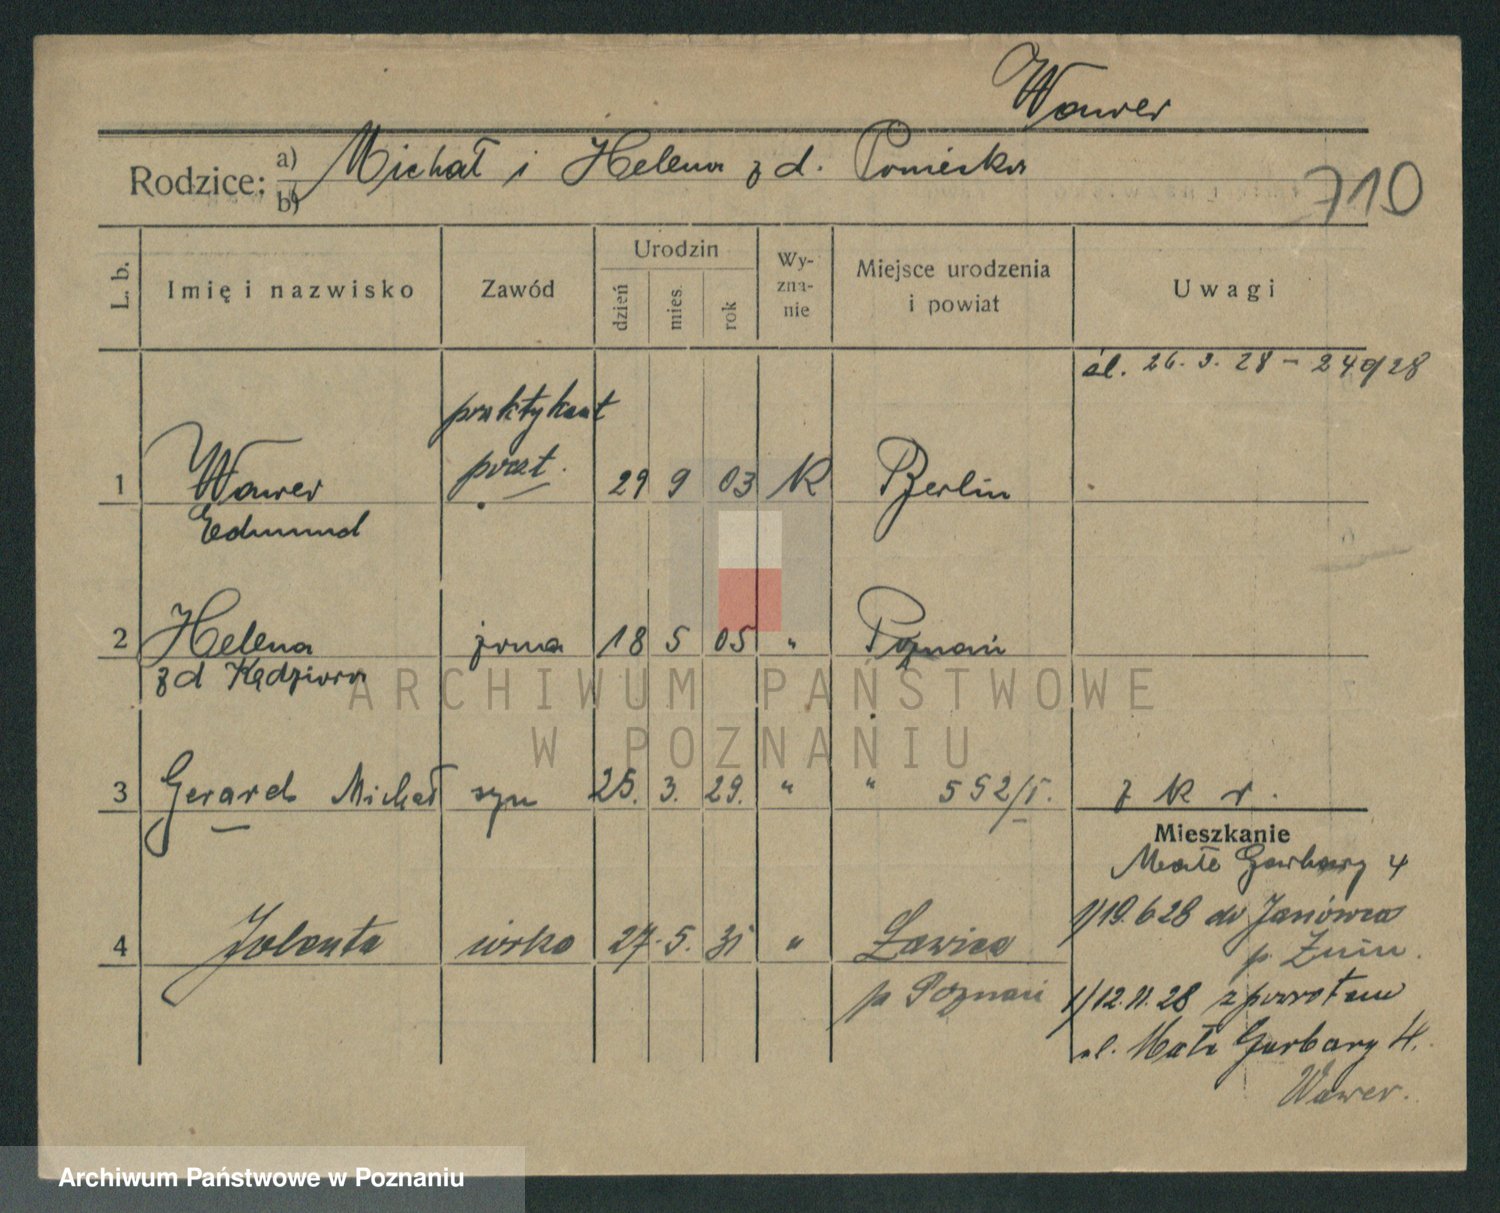 Wawer
Rodzice: a) Michał i Helena z d. Poniecka
b)
710
L. b. Imię i nazwisko Zawód Urodzin dzień mies. rok Wy-zna-nie Miejsce urodzenia i powiat Uwagi
śl. 26. 3. 28 - 240/28
praktykant
1 Wawer poczt. 29 9 03 K Berlin
Edmund
2 Helena żona 18 5 05 " Poznań
z d Kędziora
ARCHIWUM PAŃSTWOWE
W POZNANIU
3 Gerard Michał syn 25. 3. 29. " " 552/I. z K r.
Mieszkanie
Małe Garbary 4
1/19.6 28 do Janówca
4 Jolanta córka 27. 5. 31 " Ławica
p. Żnin.
p Poznań
1/12.11.28 z powrotem
ul. Małe Garbary 4.
Wawer.
Archiwum Państwowe w Poznaniu